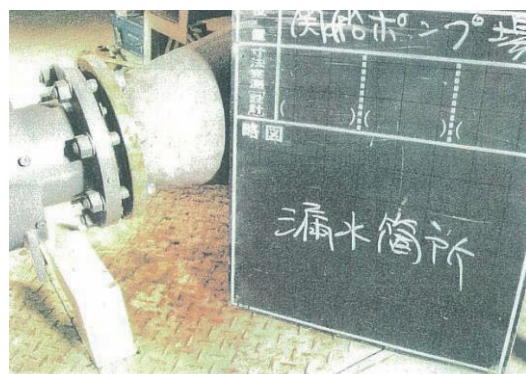 関船ポンプ場
寸法
実測
設計
( ) ( ) (
略図
漏水箇所